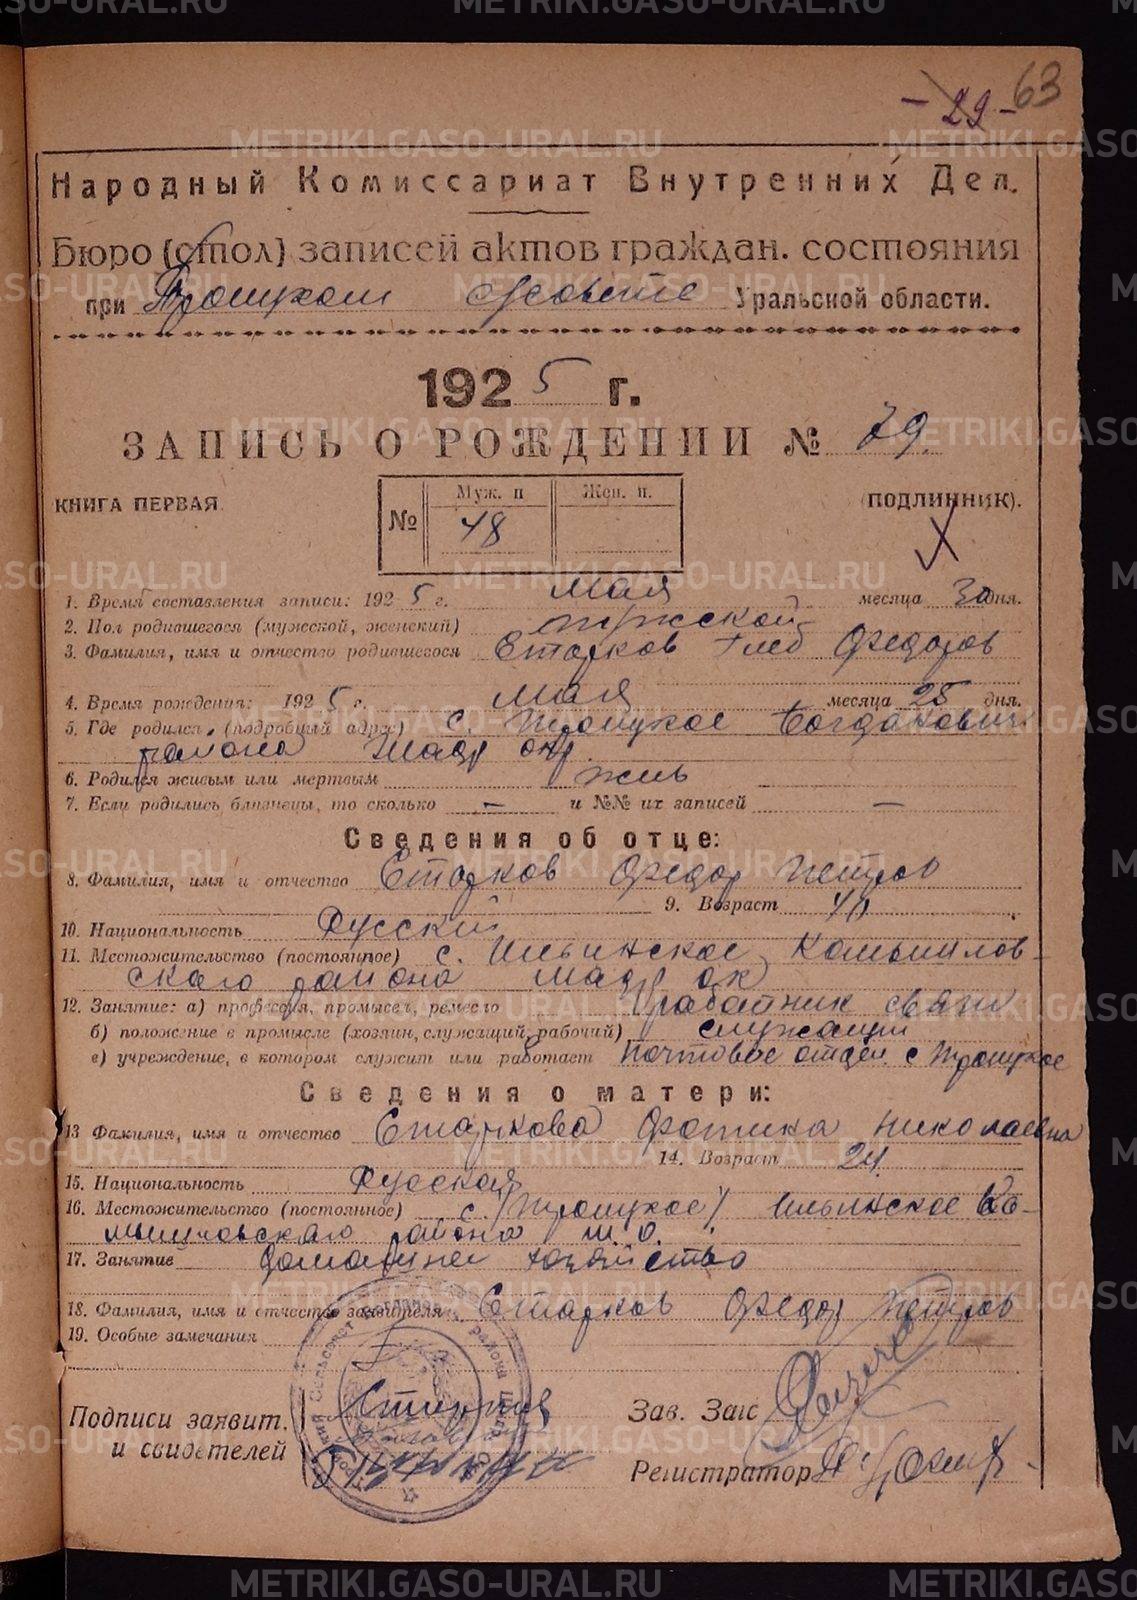 - 29 - 63
Народный Комиссариат Внутренних Дел.
Бюро (стол) записей актов граждан. состояния
при Троицком с/совете Уральской области.
1925 г.
ЗАПИСЬ О РОЖДЕНИИ № 79.
КНИГА ПЕРВАЯ (ПОДЛИННИК).
№ Муж. п Жен. п.
48
1. Время составления записи: 1925 г. мая месяца 30 дня.
2. Пол родившегося (мужской, женский) мужской
3. Фамилия, имя и отчество родившегося Старков Глеб Федоров
4. Время рождения: 1925 г. мая месяца 28 дня.
5. Где родился (подробный адрес) с. Троицкое Богданович
района Шадр окр.
6. Родился живым или мертвым жив
7. Если родились близнецы, то сколько — и №№ их записей —
Сведения об отце:
8. Фамилия, имя и отчество Старков Федор Петров
9. Возраст 40
10. Национальность Русский
11. Местожительство (постоянное) с. Ильинское Камышлов-
скаго района Шадр ок
12. Занятие: а) профессия, промысел, ремесло работник связи
б) положение в промысле (хозяин, служащий, рабочий) служащий
в) учреждение, в котором служит или работает почтовое отдел с Троицкое
Сведения о матери:
13 Фамилия, имя и отчество Старкова Фотика Николаевна
14. Возраст 24
15. Национальность Русская
16. Местожительство (постоянное) с. (Троицкое) Ильинское Ка-
мышловскаго района Ш. О.
17. Занятие домашнее хозяйство
18. Фамилия, имя и отчество заявителя Старков Федор Петров
19. Особые замечания
Подписи заявит. Старков
и свидетелей
Зав. Загс
Регистратор
METRIKI.GASO-URAL.RU